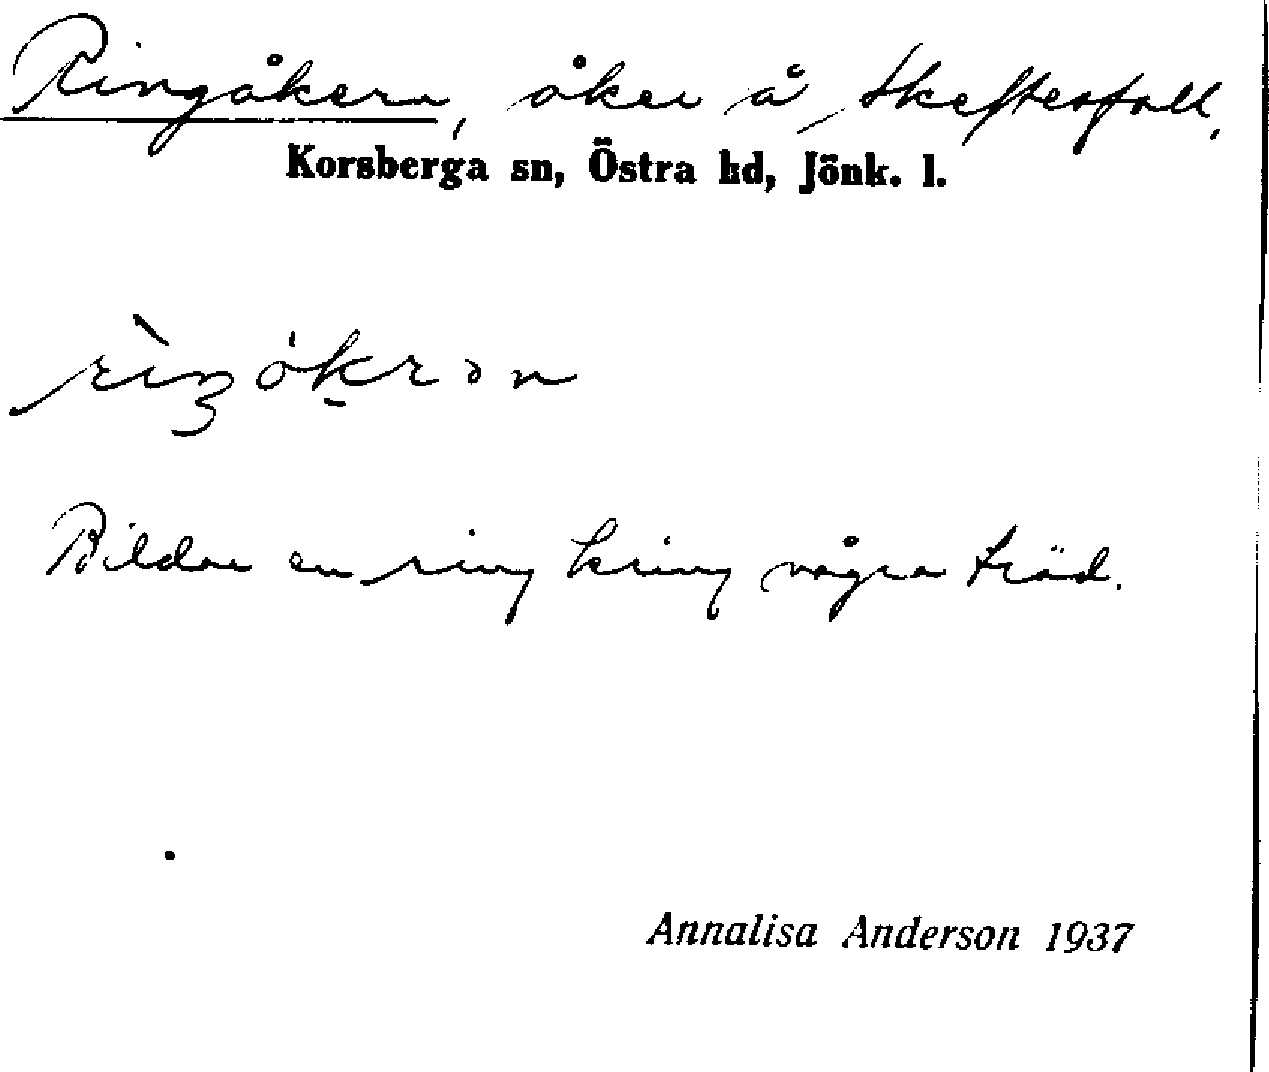 Ringåkern, åker å Skeftesfall.
Korsberga sn, Östra hd, Jönk. l.
Bildar en ring kring några träd.
Annalisa Anderson 1937